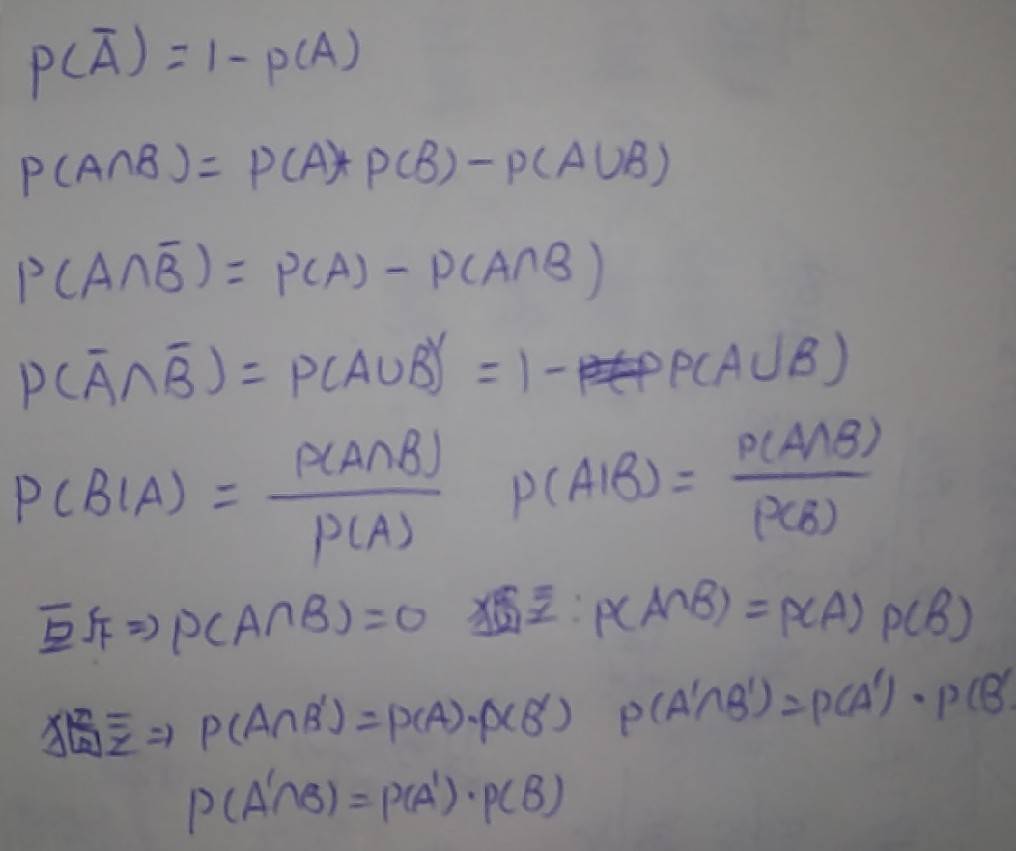 P(Ā) = 1 - P(A)
P(A∩B) = P(A)* P(B) - P(A∪B)
P(A∩B̄) = P(A) - P(A∩B)
P(Ā∩B̄) = P(A∪B)' = 1 - P(A∪B)
P(B|A) = P(A∩B) / P(A) P(A|B) = P(A∩B) / P(B)
互斥⇒P(A∩B)=0 独立:P(A∩B)=P(A) P(B)
独立⇒ P(A∩B')=P(A)·P(B') P(A'∩B')=P(A')·P(B'
P(A'∩B)=P(A')·P(B)